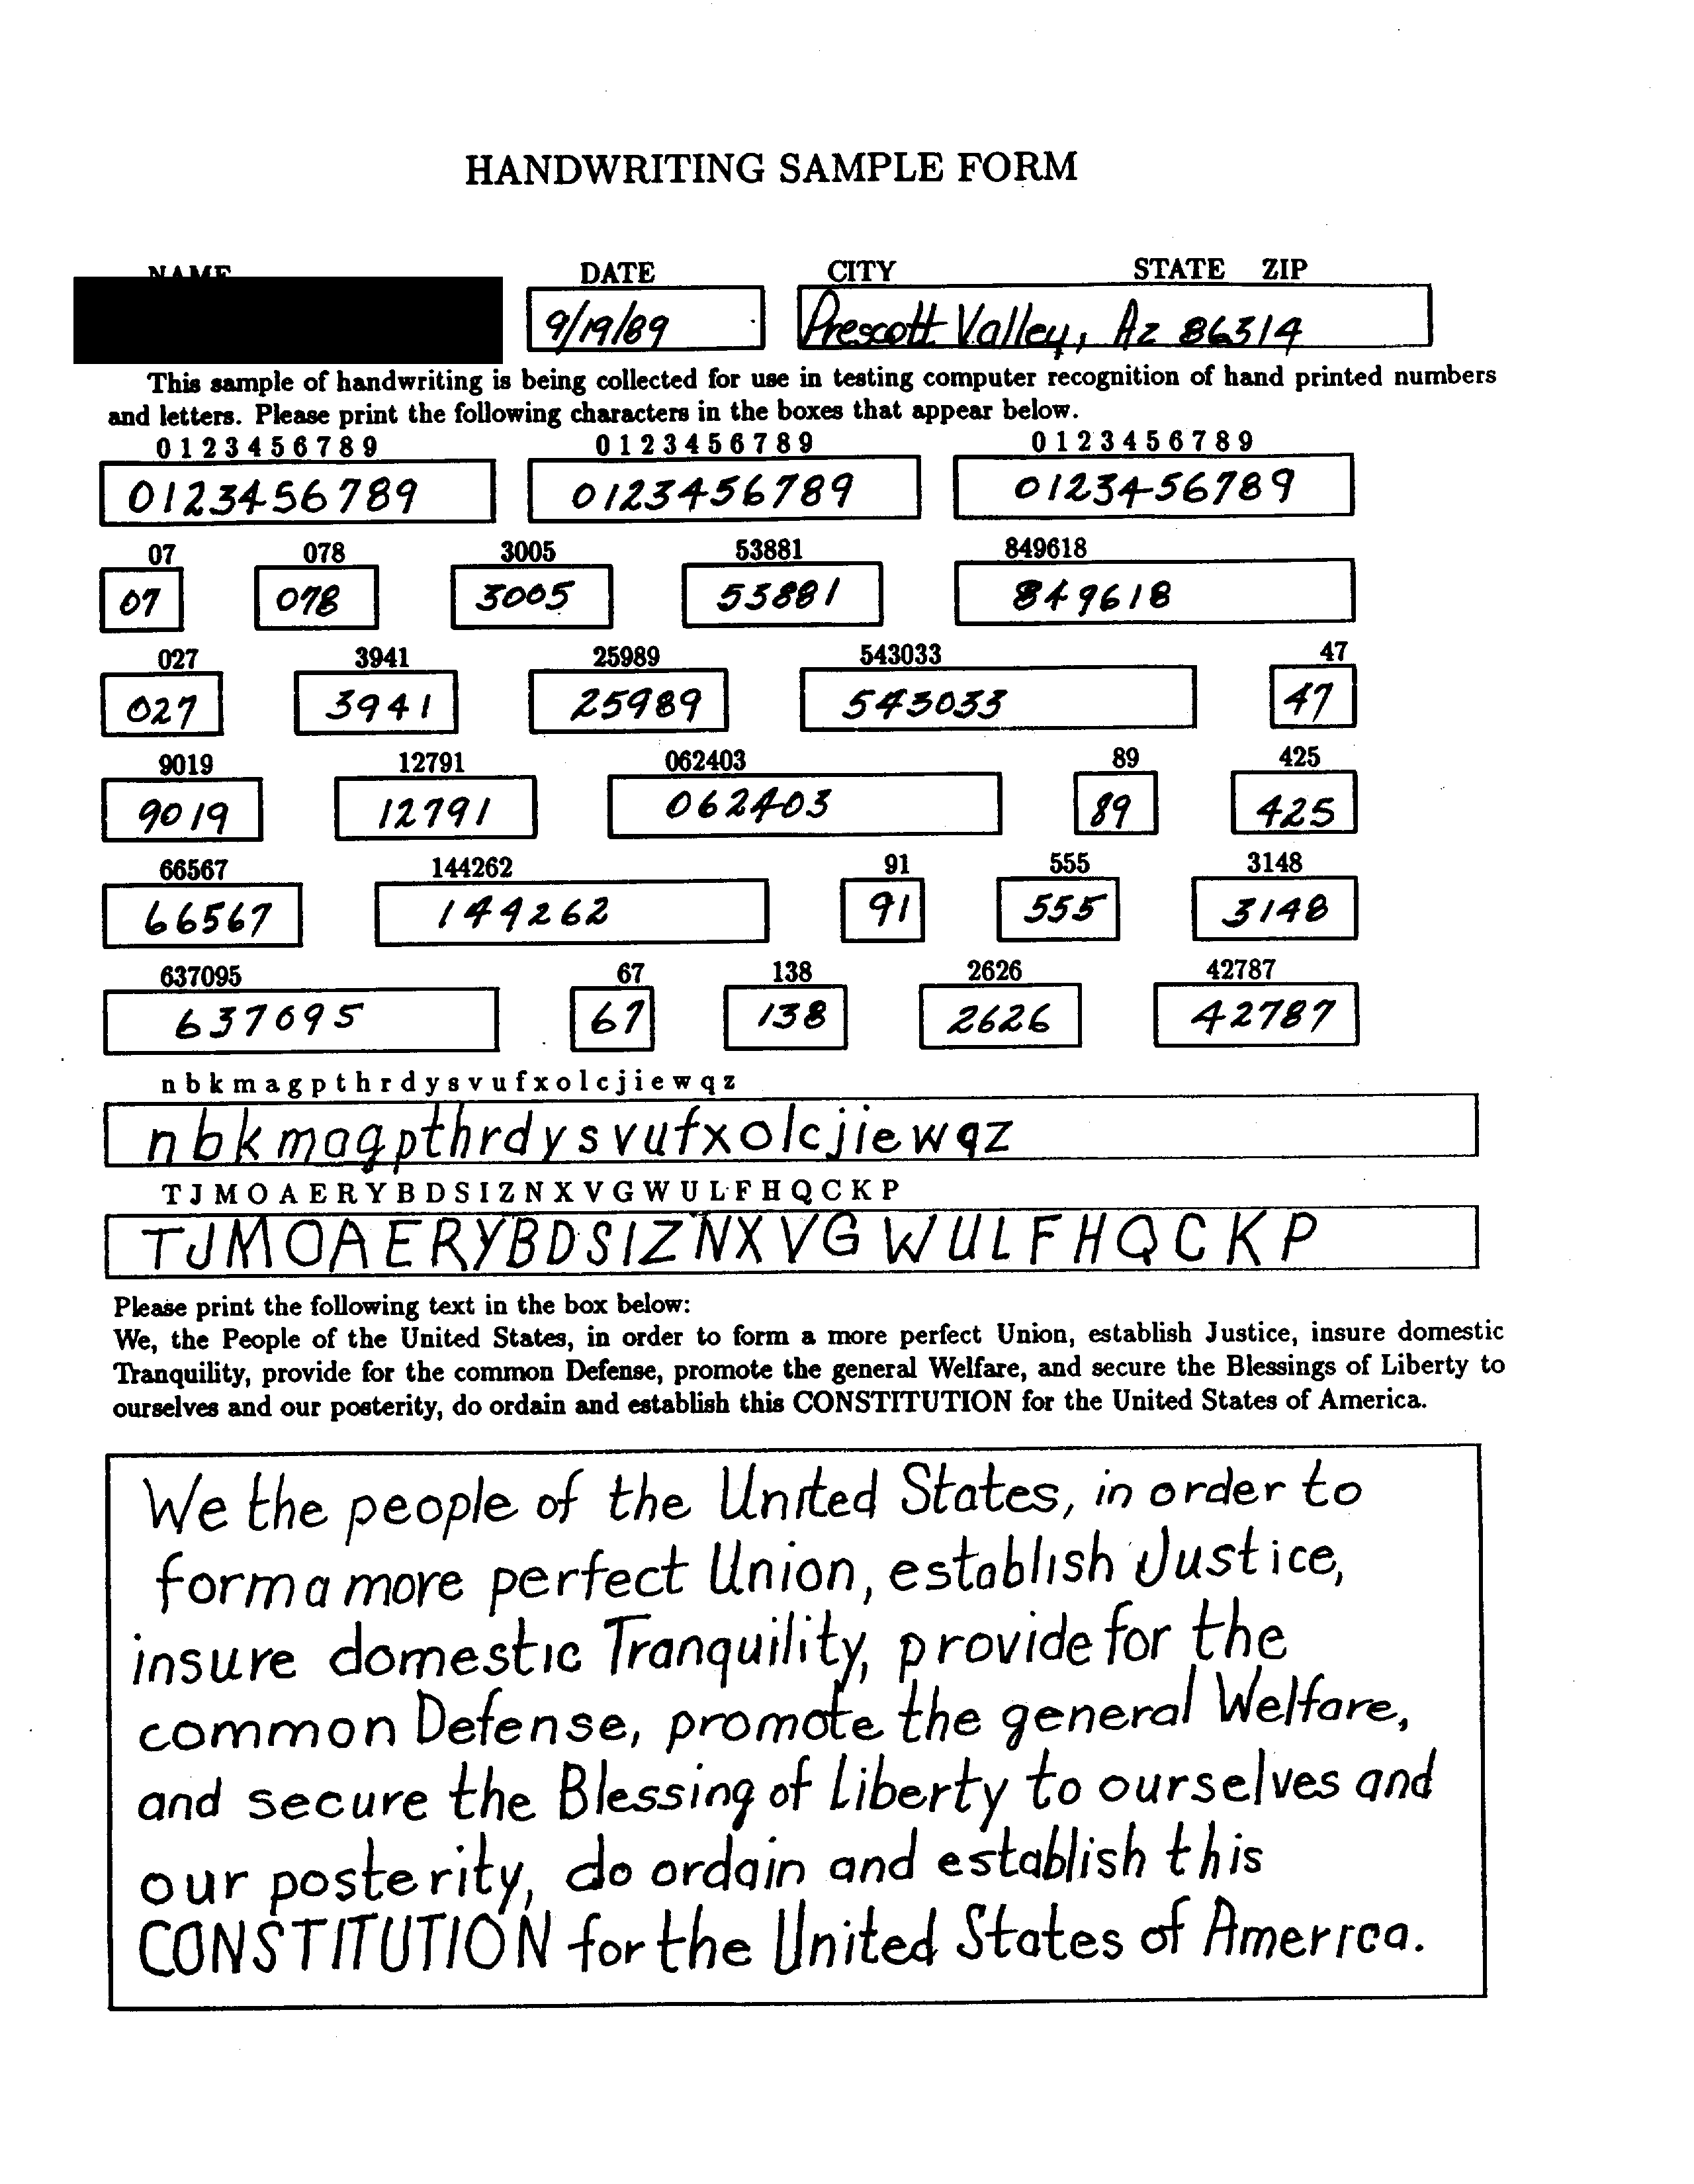 HANDWRITING SAMPLE FORM
NAME DATE CITY STATE ZIP
9/19/89 Prescott Valley, Az 86314
This sample of handwriting is being collected for use in testing computer recognition of hand printed numbers
and letters. Please print the following characters in the boxes that appear below.
0 1 2 3 4 5 6 7 8 9 0 1 2 3 4 5 6 7 8 9 0 1 2 3 4 5 6 7 8 9
0123456789 0123456789 0123456789
07 078 3005 53881 849618
07 078 3005 53881 849618
027 3941 25989 543033 47
027 3941 25989 543033 47
9019 12791 062403 89 425
9019 12791 062403 89 425
66567 144262 91 555 3148
66567 144262 91 555 3148
637095 67 138 2626 42787
637095 67 138 2626 42787
n b k m a g p t h r d y s v u f x o l c j i e w q z
n b k m a g p t h r d y s v u f x o l c j i e w q z
T J M O A E R Y B D S I Z N X V G W U L F H Q C K P
T J M O A E R Y B D S I Z N X V G W U L F H Q C K P
Please print the following text in the box below:
We, the People of the United States, in order to form a more perfect Union, establish Justice, insure domestic
Tranquility, provide for the common Defense, promote the general Welfare, and secure the Blessings of Liberty to
ourselves and our posterity, do ordain and establish this CONSTITUTION for the United States of America.
We the people of the United States, in order to
form a more perfect Union, establish Justice,
insure domestic Tranquility, provide for the
common Defense, promote the general Welfare,
and secure the Blessing of Liberty to ourselves and
our posterity, do ordain and establish this
CONSTITUTION for the United States of America.